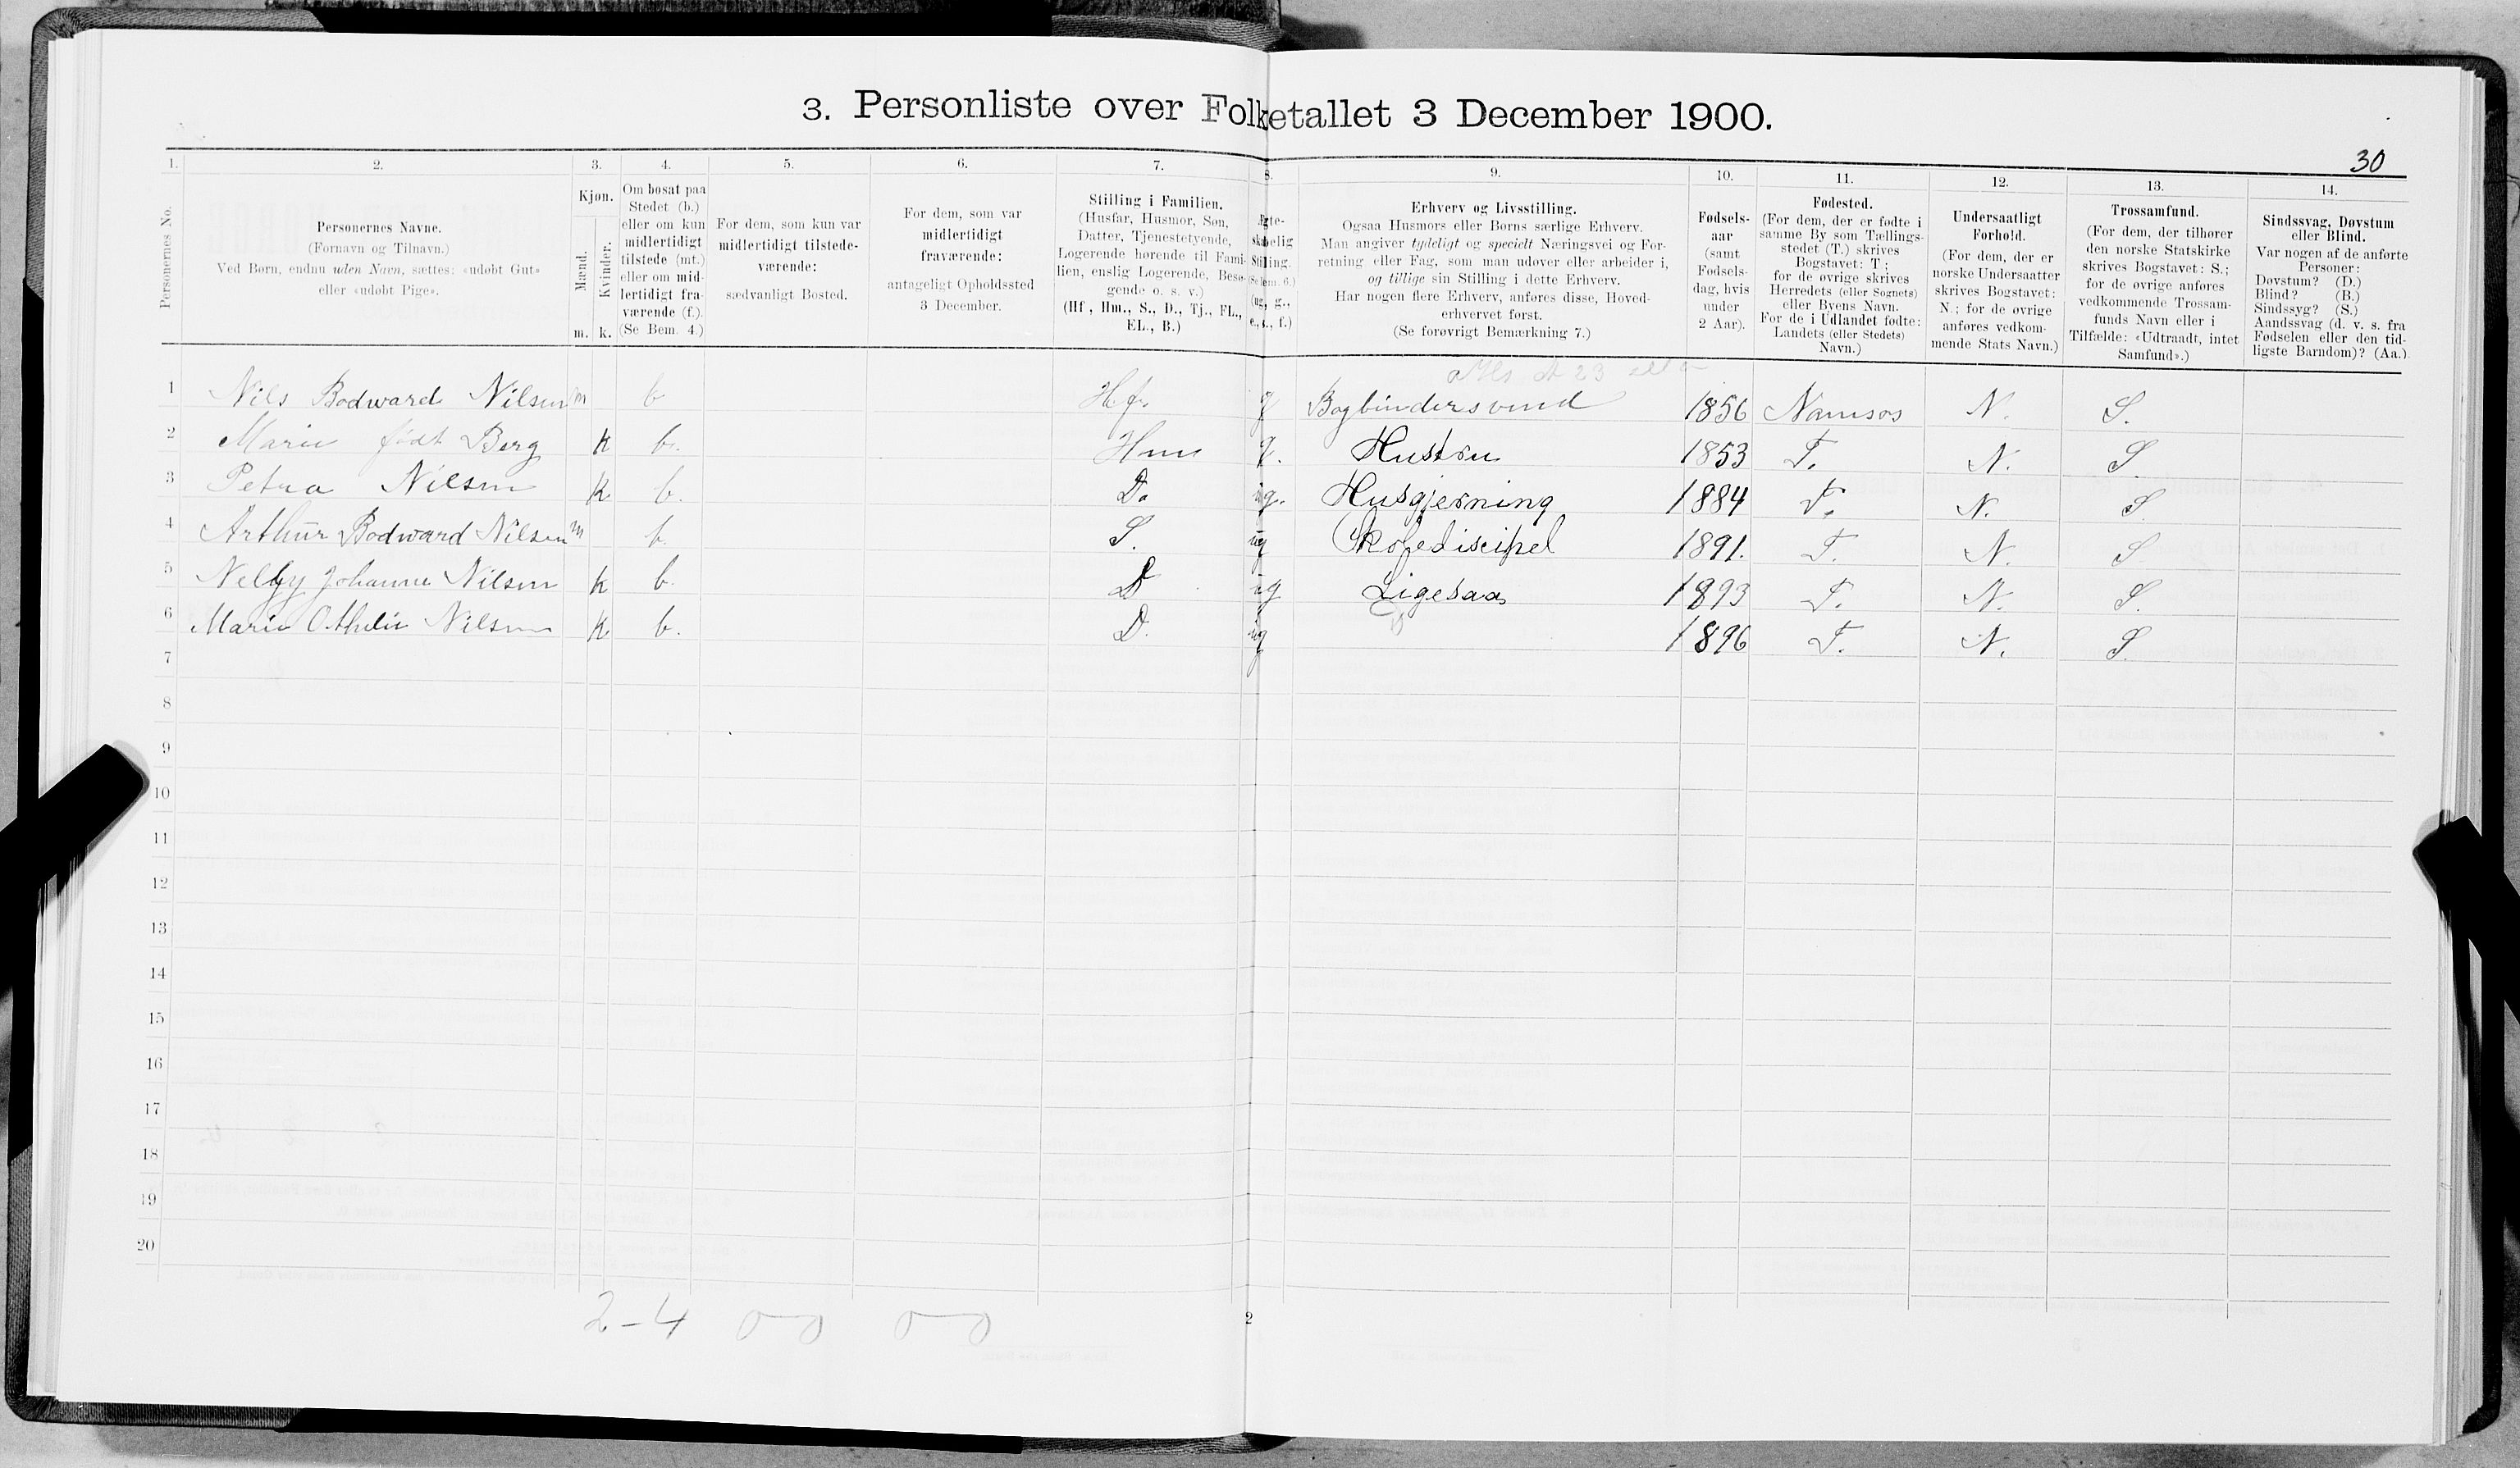 3. Personliste over Folketallet 3 December 1900.
30
1. 2. 3. 4. 5. 6. 7. 8. 9. 10. 11. 12. 13. 14.
Personernes No.
Personernes Navne.
(Fornavn og Tilnavn.)
Ved Børn, endnu uden Navn, sættes: «udøbt Gut»
eller «udøbt Pige».
Kjøn.
Mænd.
Kvinder.
m. k.
Om bosat paa
Stedet (b.)
eller om kun
midlertidigt
tilstede (mt.)
eller om mid-
lertidigt fra-
værende (f.).
(Se Bem. 4.)
For dem, som kun var
midlertidigt tilstede-
værende:
sædvanligt Bosted.
For dem, som var
midlertidigt
fraværende:
antageligt Opholdssted
3 December.
Stilling i Familien.
(Husfar, Husmor, Søn,
Datter, Tjenestetyende,
Logerende hørende til Fami-
lien, enslig Logerende, Besø-
gende o. s. v.)
(Hf., Hm., S., D., Tj., FL.,
EL., B.)
Ægte-
skabelig
Stilling.
(Se Bem. 6.)
(ug., g.,
e., s., f.)
Erhverv og Livsstilling.
Ogsaa Husmors eller Børns særlige Erhverv.
Man angiver tydeligt og specielt Næringsvei og For-
retning eller Fag, som man udøver eller arbeider i,
og tillige sin Stilling i dette Erhverv.
Har nogen flere Erhverv, anføres disse, Hoved-
erhvervet først.
(Se forøvrigt Bemærkning 7.)
Fødsels-
aar
(samt
Fødsels-
dag, hvis
under
2 Aar).
Fødested.
(For dem, der er fødte i
samme By som Tællings-
stedet (T.) skrives
Bogstavet: T;
for de øvrige skrives
Herredets (eller Sognets)
eller Byens Navn.
For de i Udlandet fødte:
Landets (eller Stedets)
Navn.)
Undersaatligt
Forhold.
(For dem, der er
norske Undersaatter
skrives Bogstavet:
N.; for de øvrige
anføres vedkom-
mende Stats Navn.)
Trossamfund.
(For dem, der tilhører
den norske Statskirke
skrives Bogstavet: S.;
for de øvrige anføres
vedkommende Trossam-
funds Navn eller i
Tilfælde: «Udtraadt, intet
Samfund».)
Sindssvag, Døvstum
eller Blind.
Var nogen af de anførte
Personer:
Døvstum? (D.)
Blind? (B.)
Sindssyg? (S.)
Aandssvag (d. v. s. fra
Fødselen eller den tid-
ligste Barndom)? (Aa.)
1 Nils Bodward Nilsen m b Hf. g Bogbindersvend 1856 Namsos N. S.
2 Marie født Berg k b. Hm g. Hustru 1853 T. N. S
3 Petra Nilsen k. b. D. ug. Husgjerning 1884 T. N. S
4 Arthur Bodward Nilsen m b. S. ug Skolediscipel 1891. T. N. S
5 Nelly Johanne Nilsen k b. D ug Ligesaa 1893 T. N. S.
6 Marie Othelie Nilsen k b. D. ug 1896 T. N. S.
7
8
9
10
11
12
13
14
15
16
17
18
19
20
2-4 0-0 0-0
2